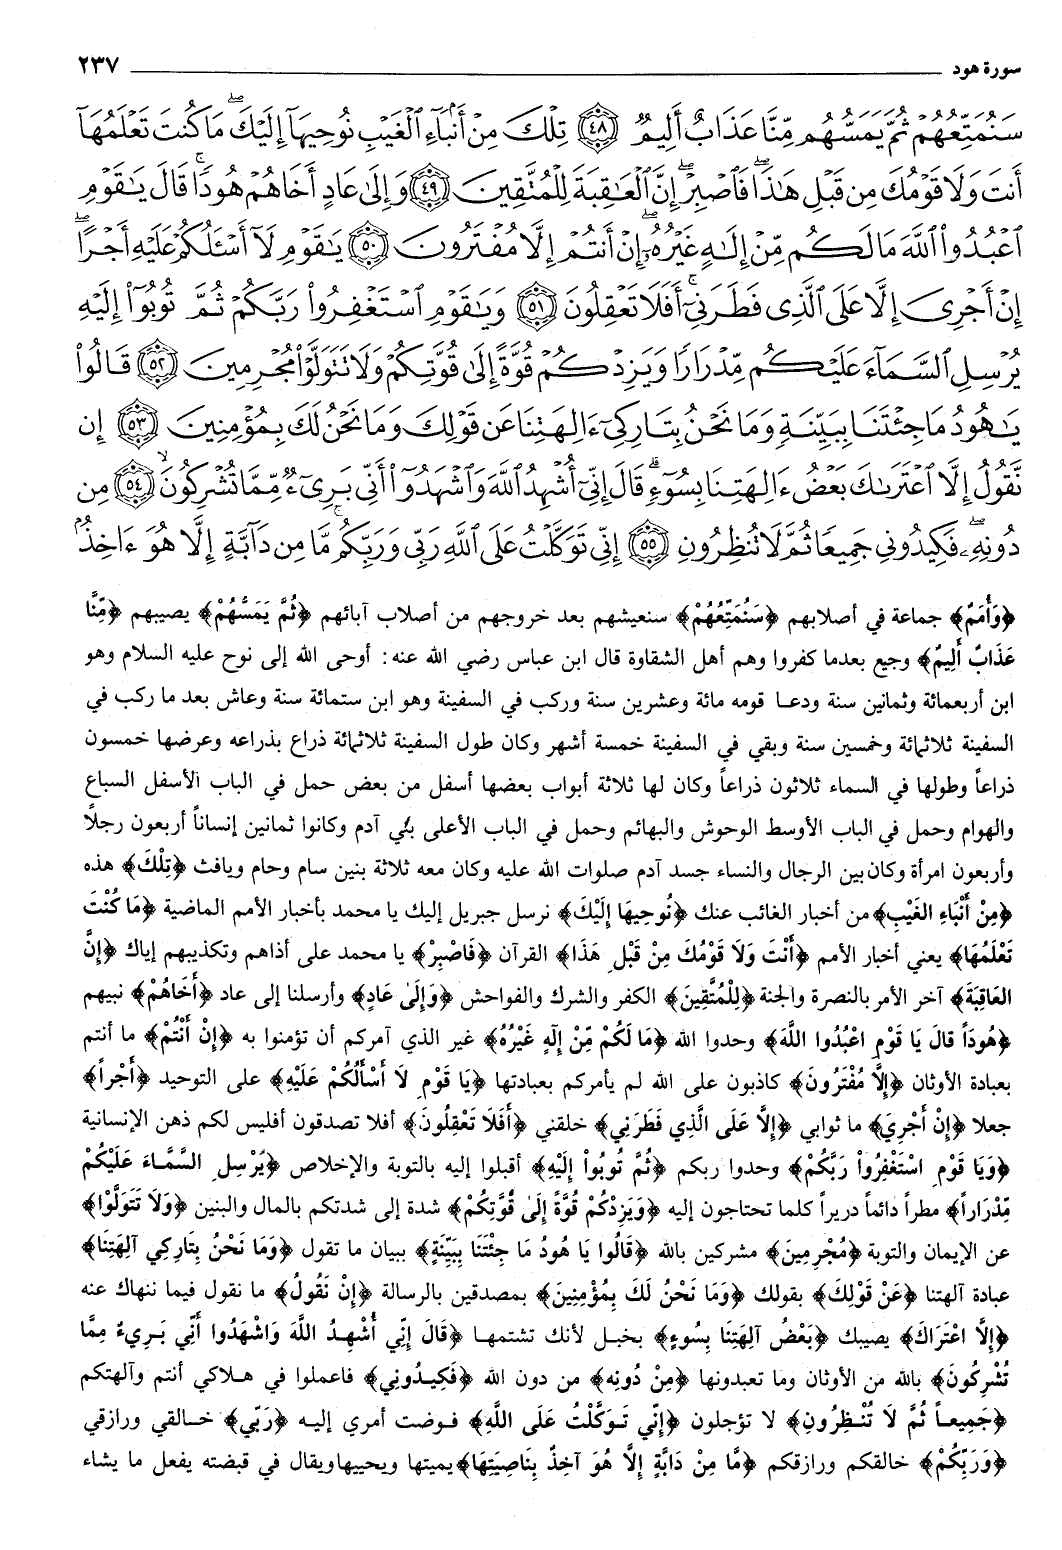 سورة هود ٢٣٧
سَنُمَتِّعُهُمْ ثُمَّ يَمَسُّهُم مِّنَّا عَذَابٌ أَلِيمٌ ﴿٤٨﴾ تِلْكَ مِنْ أَنۢبَآءِ ٱلْغَيْبِ نُوحِيهَآ إِلَيْكَ ۖ مَا كُنتَ تَعْلَمُهَآ
أَنتَ وَلَا قَوْمُكَ مِن قَبْلِ هَٰذَا ۖ فَٱصْبِرْ ۖ إِنَّ ٱلْعَٰقِبَةَ لِلْمُتَّقِينَ ﴿٤٩﴾ وَإِلَىٰ عَادٍ أَخَاهُمْ هُودًا ۚ قَالَ يَٰقَوْمِ
ٱعْبُدُوا۟ ٱللَّهَ مَا لَكُم مِّنْ إِلَٰهٍ غَيْرُهُۥٓ ۖ إِنْ أَنتُمْ إِلَّا مُفْتَرُونَ ﴿٥٠﴾ يَٰقَوْمِ لَآ أَسْـَٔلُكُمْ عَلَيْهِ أَجْرًا ۖ
إِنْ أَجْرِىَ إِلَّا عَلَى ٱلَّذِى فَطَرَنِىٓ ۚ أَفَلَا تَعْقِلُونَ ﴿٥١﴾ وَيَٰقَوْمِ ٱسْتَغْفِرُوا۟ رَبَّكُمْ ثُمَّ تُوبُوٓا۟ إِلَيْهِ
يُرْسِلِ ٱلسَّمَآءَ عَلَيْكُم مِّدْرَارًا وَيَزِدْكُمْ قُوَّةً إِلَىٰ قُوَّتِكُمْ وَلَا تَتَوَلَّوْا۟ مُجْرِمِينَ ﴿٥٢﴾ قَالُوا۟
يَٰهُودُ مَا جِئْتَنَا بِبَيِّنَةٍ وَمَا نَحْنُ بِتَارِكِىٓ ءَالِهَتِنَا عَن قَوْلِكَ وَمَا نَحْنُ لَكَ بِمُؤْمِنِينَ ﴿٥٣﴾ إِن
نَّقُولُ إِلَّا ٱعْتَرَىٰكَ بَعْضُ ءَالِهَتِنَا بِسُوٓءٍ ۗ قَالَ إِنِّىٓ أُشْهِدُ ٱللَّهَ وَٱشْهَدُوٓا۟ أَنِّى بَرِىٓءٌ مِّمَّا تُشْرِكُونَ ﴿٥٤﴾ مِن
دُونِهِۦ ۖ فَكِيدُونِى جَمِيعًا ثُمَّ لَا تُنظِرُونِ ﴿٥٥﴾ إِنِّى تَوَكَّلْتُ عَلَى ٱللَّهِ رَبِّى وَرَبِّكُم ۚ مَّا مِن دَآبَّةٍ إِلَّا هُوَ ءَاخِذٌۢ
﴿وَأُمَمٌ﴾ جماعة في أصلابهم ﴿سَنُمَتِّعُهُمْ﴾ سنعيشهم بعد خروجهم من أصلاب آبائهم ﴿ثُمَّ يَمَسُّهُمْ﴾ يصيبهم ﴿مِّنَّا
عَذَابٌ أَلِيمٌ﴾ وجيع بعدما كفروا وهم أهل الشقاوة قال ابن عباس رضي الله عنه: أوحى الله إلى نوح عليه السلام وهو
ابن أربعمائة وثمانين سنة ودعا قومه مائة وعشرين سنة وركب في السفينة وهو ابن ستمائة سنة وعاش بعد ما ركب في
السفينة ثلاثمائة وخمسين سنة وبقي في السفينة خمسة أشهر وكان طول السفينة ثلاثمائة ذراع بذراعه وعرضها خمسون
ذراعاً وطولها في السماء ثلاثون ذراعاً وكان لها ثلاثة أبواب بعضها أسفل من بعض حمل في الباب الأسفل السباع
والهوام وحمل في الباب الأوسط الوحوش والبهائم وحمل في الباب الأعلى بني آدم وكانوا ثمانين إنساناً أربعون رجلاً
وأربعون امرأة وكان بين الرجال والنساء جسد آدم صلوات الله عليه وكان معه ثلاثة بنين سام وحام ويافث ﴿تِلْكَ﴾ هذه
﴿مِنْ أَنْبَاءِ الغَيْبِ﴾ من أخبار الغائب عنك ﴿نُوحِيهَا إِلَيْكَ﴾ نرسل جبريل إليك يا محمد بأخبار الأمم الماضية ﴿مَا كُنْتَ
تَعْلَمُهَا﴾ يعني أخبار الأمم ﴿أَنْتَ وَلَا قَوْمُكَ مِنْ قَبْلِ هَذَا﴾ القرآن ﴿فَاصْبِرْ﴾ يا محمد على أذاهم وتكذيبهم إياك ﴿إِنَّ
العَاقِبَةَ﴾ آخر الأمر بالنصرة والجنة ﴿لِلْمُتَّقِينَ﴾ الكفر والشرك والفواحش ﴿وَإِلَىٰ عَادٍ﴾ وأرسلنا إلى عاد ﴿أَخَاهُمْ﴾ نبيهم
﴿هُودَاً قالَ يَا قَوْمِ اعْبُدُوا اللَّهَ﴾ وحدوا الله ﴿مَا لَكُمْ مِّنْ إِلٰهٍ غَيْرُهُ﴾ غير الذي آمركم أن تؤمنوا به ﴿إِنْ أَنْتُمْ﴾ ما أنتم
بعبادة الأوثان ﴿إِلَّا مُفْتَرُونَ﴾ كاذبون على الله لم يأمركم بعبادتها ﴿يَا قَوْمِ لَا أَسْأَلُكُمْ عَلَيْهِ﴾ على التوحيد ﴿أَجْراً﴾
جعلا ﴿إِنْ أَجْرِيَ﴾ ما ثوابي ﴿إِلَّا عَلَى الَّذِي فَطَرَنِي﴾ خلقني ﴿أَفَلَا تَعْقِلُونَ﴾ أفلا تصدقون أفليس لكم ذهن الإنسانية
﴿وَيَا قَوْمِ اسْتَغْفِرُواْ رَبَّكُمْ﴾ وحدوا ربكم ﴿ثُمَّ تُوبُواْ إِلَيْهِ﴾ أقبلوا إليه بالتوبة والإخلاص ﴿يُرْسِلِ السَّمَاءَ عَلَيْكُمْ
مِّدْرَاراً﴾ مطراً دائماً دريراً كلما تحتاجون إليه ﴿وَيَزِدْكُمْ قُوَّةً إِلَىٰ قُوَّتِكُمْ﴾ شدة إلى شدتكم بالمال والبنين ﴿وَلَا تَتَوَلَّوْا﴾
عن الإيمان والتوبة ﴿مُجْرِمِينَ﴾ مشركين بالله ﴿قَالُوا يَا هُودُ مَا جِئْتَنَا بِبَيِّنَةٍ﴾ ببيان ما تقول ﴿وَمَا نَحْنُ بِتَارِكِي آلِهَتِنَا﴾
عبادة آلهتنا ﴿عَنْ قَوْلِكَ﴾ بقولك ﴿وَمَا نَحْنُ لَكَ بِمُؤْمِنِينَ﴾ بمصدقين بالرسالة ﴿إِنْ نَقُولُ﴾ ما نقول فيما ننهاك عنه
﴿إِلَّا اعْتَرَاكَ﴾ يصيبك ﴿بَعْضُ آلِهَتِنَا بِسُوءٍ﴾ بخبل لأنك تشتمها ﴿قَالَ إِنِّي أُشْهِدُ اللَّهَ وَاشْهَدُوا أَنِّي بَرِيءٌ مِمَّا
تُشْرِكُونَ﴾ بالله من الأوثان وما تعبدونها ﴿مِنْ دُونِه﴾ من دون الله ﴿فَكِيدُونِي﴾ فاعملوا في هلاكي أنتم وآلهتكم
﴿جَمِيعاً ثُمَّ لَا تُنْظِرُونِ﴾ لا تؤجلون ﴿إِنِّي تَوَكَّلْتُ عَلَى اللَّهِ﴾ فوضت أمري إليه ﴿رَبِّي﴾ خالقي ورازقي
﴿وَرَبِّكُمْ﴾ خالقكم ورازقكم ﴿مَّا مِنْ دَابَّةٍ إِلَّا هُوَ آخِذٌ بِنَاصِيَتِهَا﴾ يميتها ويحييها ويقال في قبضته يفعل ما يشاء